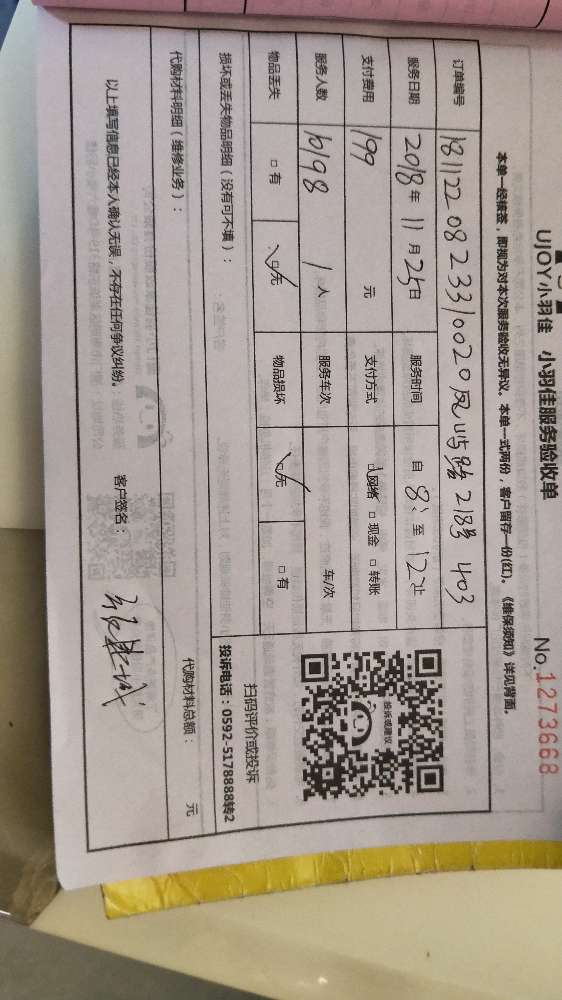 UJOY小羽佳 小羽佳服务验收单
No.1273668
本单一经接签，即视为对本次服务验收无异议。本单一式两份，客户留存一份(红)。《维保须知》详见背面。
订单编号 181122082331002０ 凤屿路218号403
服务日期 2018年11月25日 服务时间 自 8: 至 12止
支付费用 199 元 支付方式 ☑网络 □现金 □转账
服务人数 b198 1人 服务车次 车/次
物品丢失 □有 ☑无 物品损坏 ☑无 □有
损坏或丢失物品明细（没有可不填）：
投诉或建议
扫码评价或投诉
投诉电话：0592-5178888转2
代购材料明细（维修业务）： 代购材料总额： 元
以上填写信息已经本人确认无误，不存在任何争议纠纷。 客户签名：